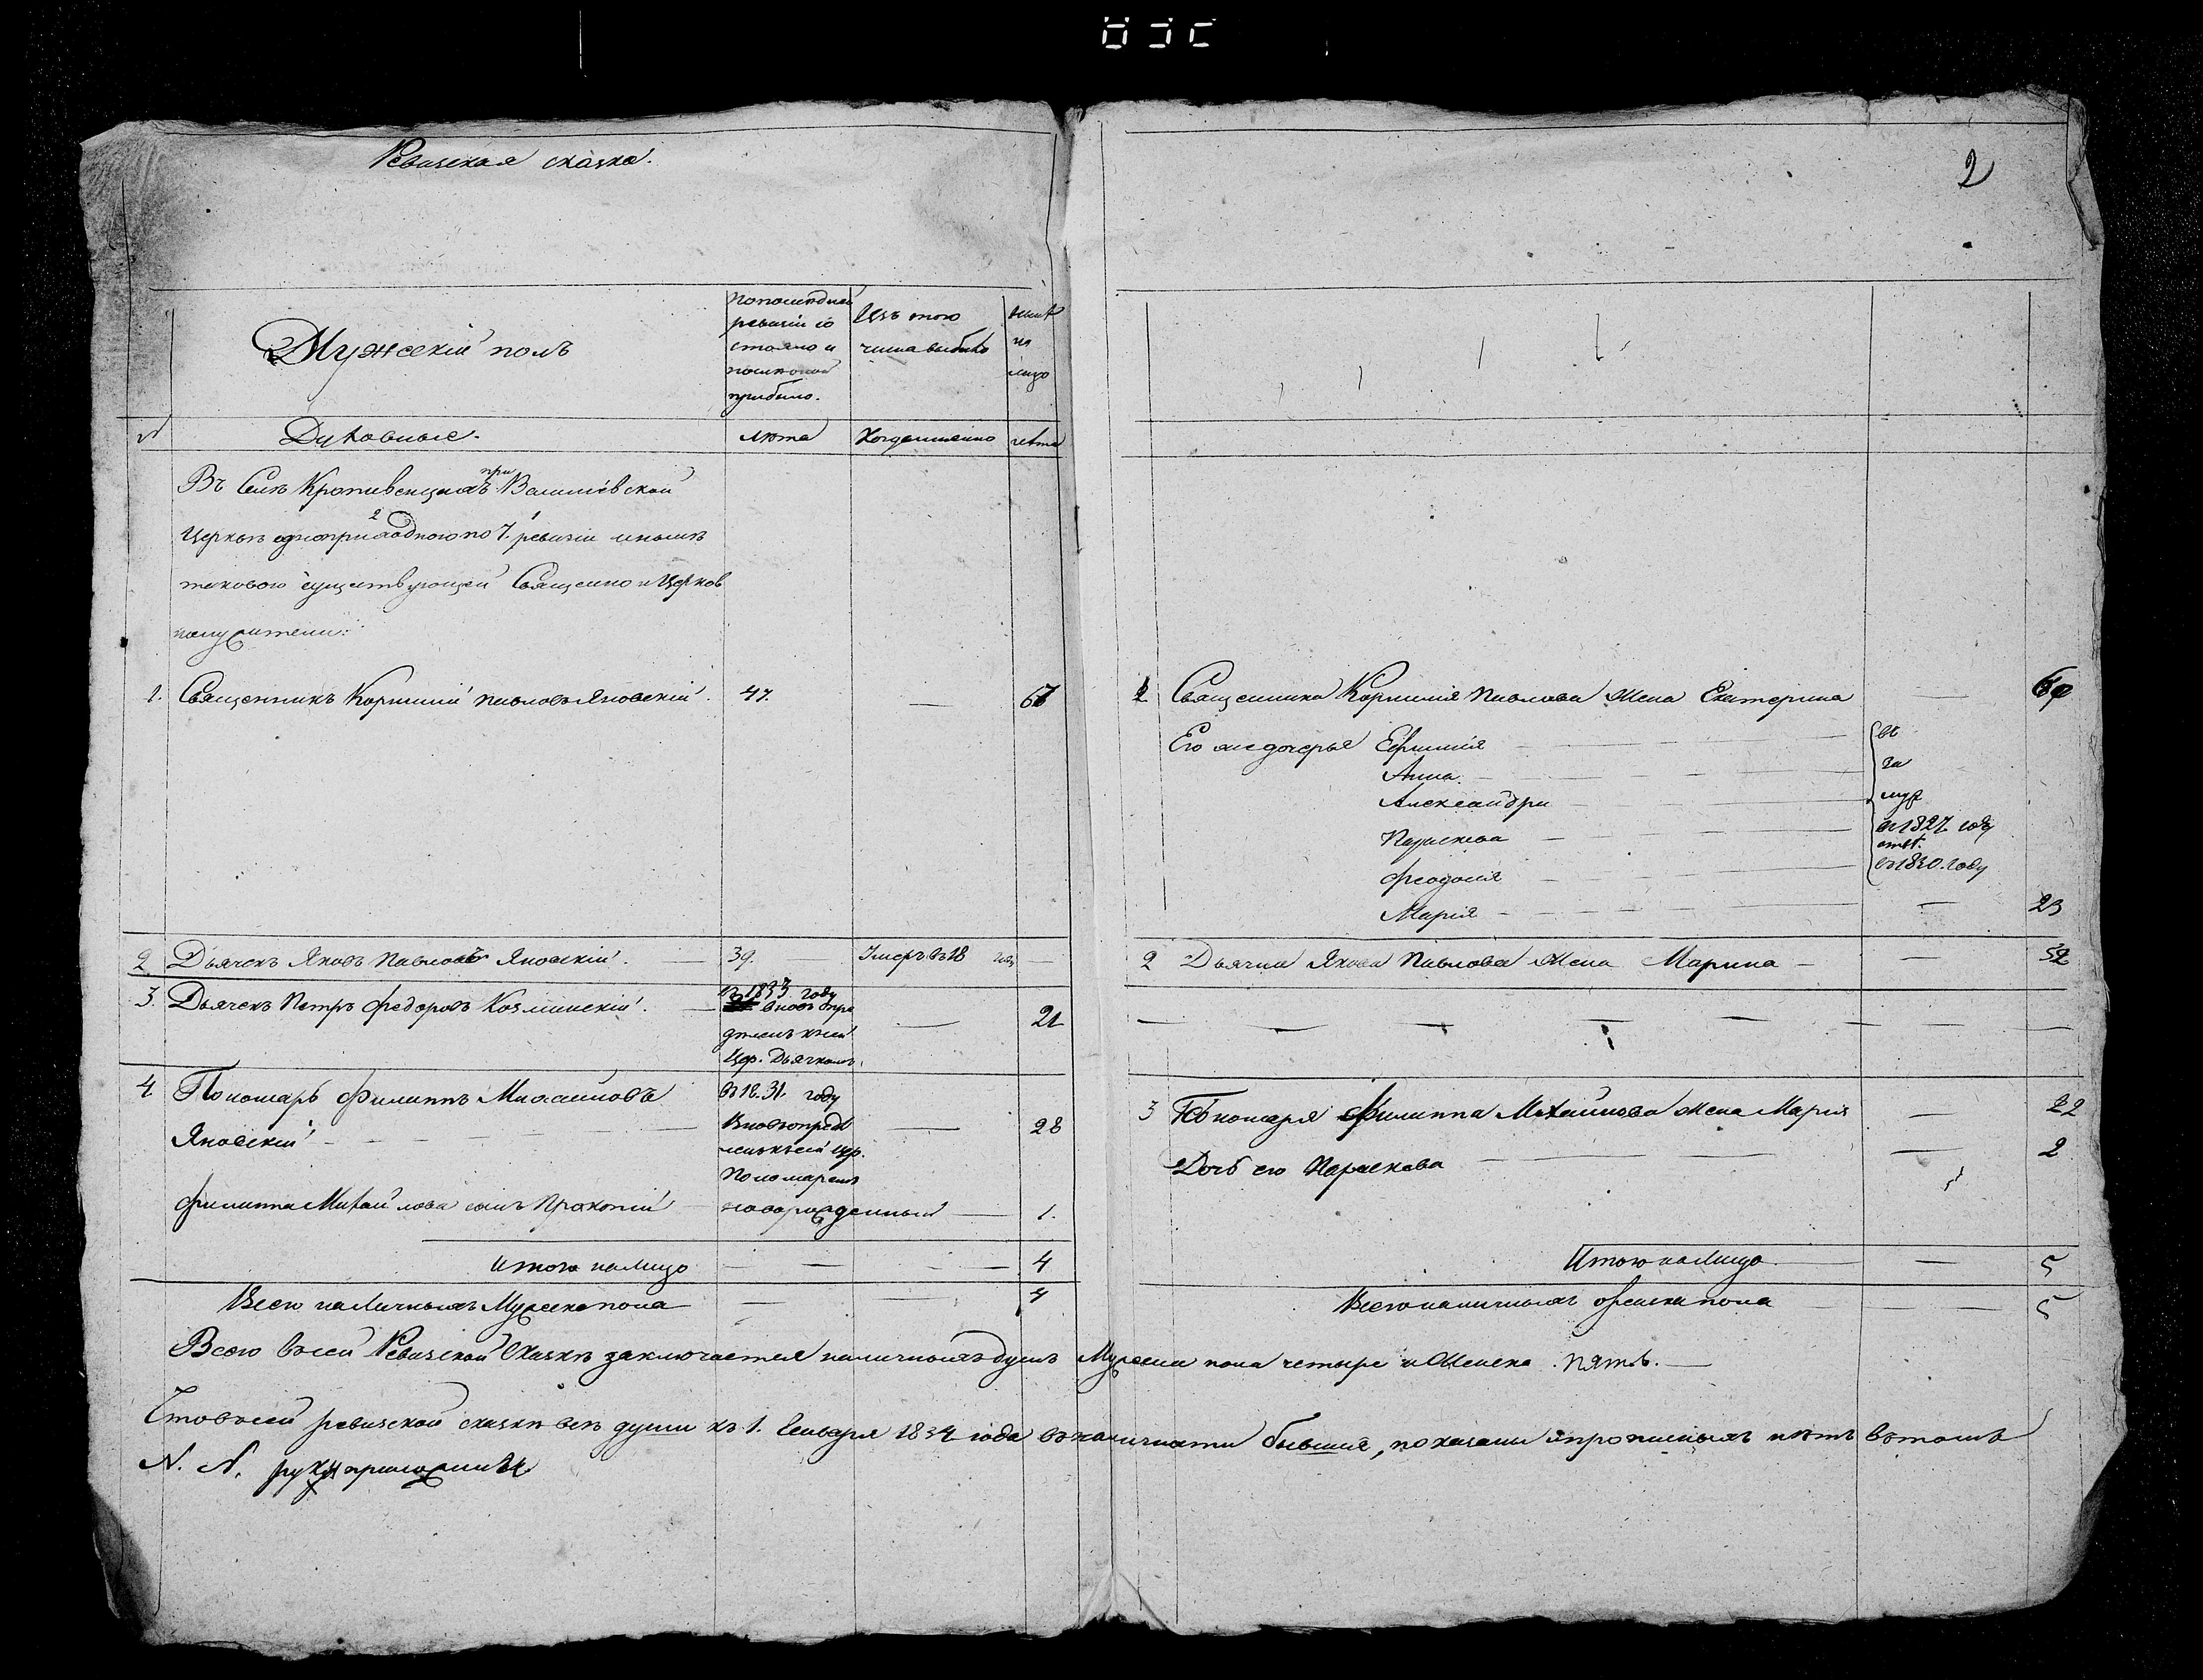 Ревизская сказка.
2
Мужескій полъ
По последней ревизіи состояло и после оной прибыло.
Изъ того числа выбыло
ныне на лицо
№
Духовные.
лета
Когда именно
лета
Въ Селе Кропивенцахъ при Василіевской
Церкве одноприходного по 7. ревизіи и ныне
таковою существующей Священно и Церков
нослужители:
1. Священникъ Корнилій Павловъ Яновскій. 47. — 67
2 Дьячекъ Яковъ Павловъ Яновскій. — 39. Умеръ въ 18 году —
3. Дьячекъ Петръ Федоровъ Козминскій. —
въ 1833 году
вновь опре
деленъ къ сей
Цер. Дьячкомъ.
— 21
4. Пономарь Филиппъ Михайловъ
Яновскій —
въ 1831. году
Вновь опреде
ленъ къ сей цер.
Пономаремъ
— 28
Филиппа Михайлова сынъ Прокопій — новорожденный — 1.
Итого на лицо — — 4
Всего наличныхъ Мужеска пола — — 4
1 Священника Корнилія Павлова Жена Екатерина —
Его же дочерья Ефимія —
Анна. —
Александра —
въ
за
муж
Параскева — въ 1827 году
Феодосія — въ 1830. году
Мария — — 23
2 Дьячка Якова Павлова Жена Марина — — 52
3 Пономаря Филиппа Михайлова жена Марія — 22
Дочь его Параскева — — 2
Итого на лицо. — 5
Всего наличныхъ женска пола — 5
Всего въ сей Ревизской Сказке заключается наличныхъ душъ Мужеска пола четыре и Женска пять. —
Что въ сей ревизской сказке все души къ 1. Генваря 1834 года въ наличности бывшія, показаны и прописныхъ нетъ въ томъ
N. N. руку приложилъ